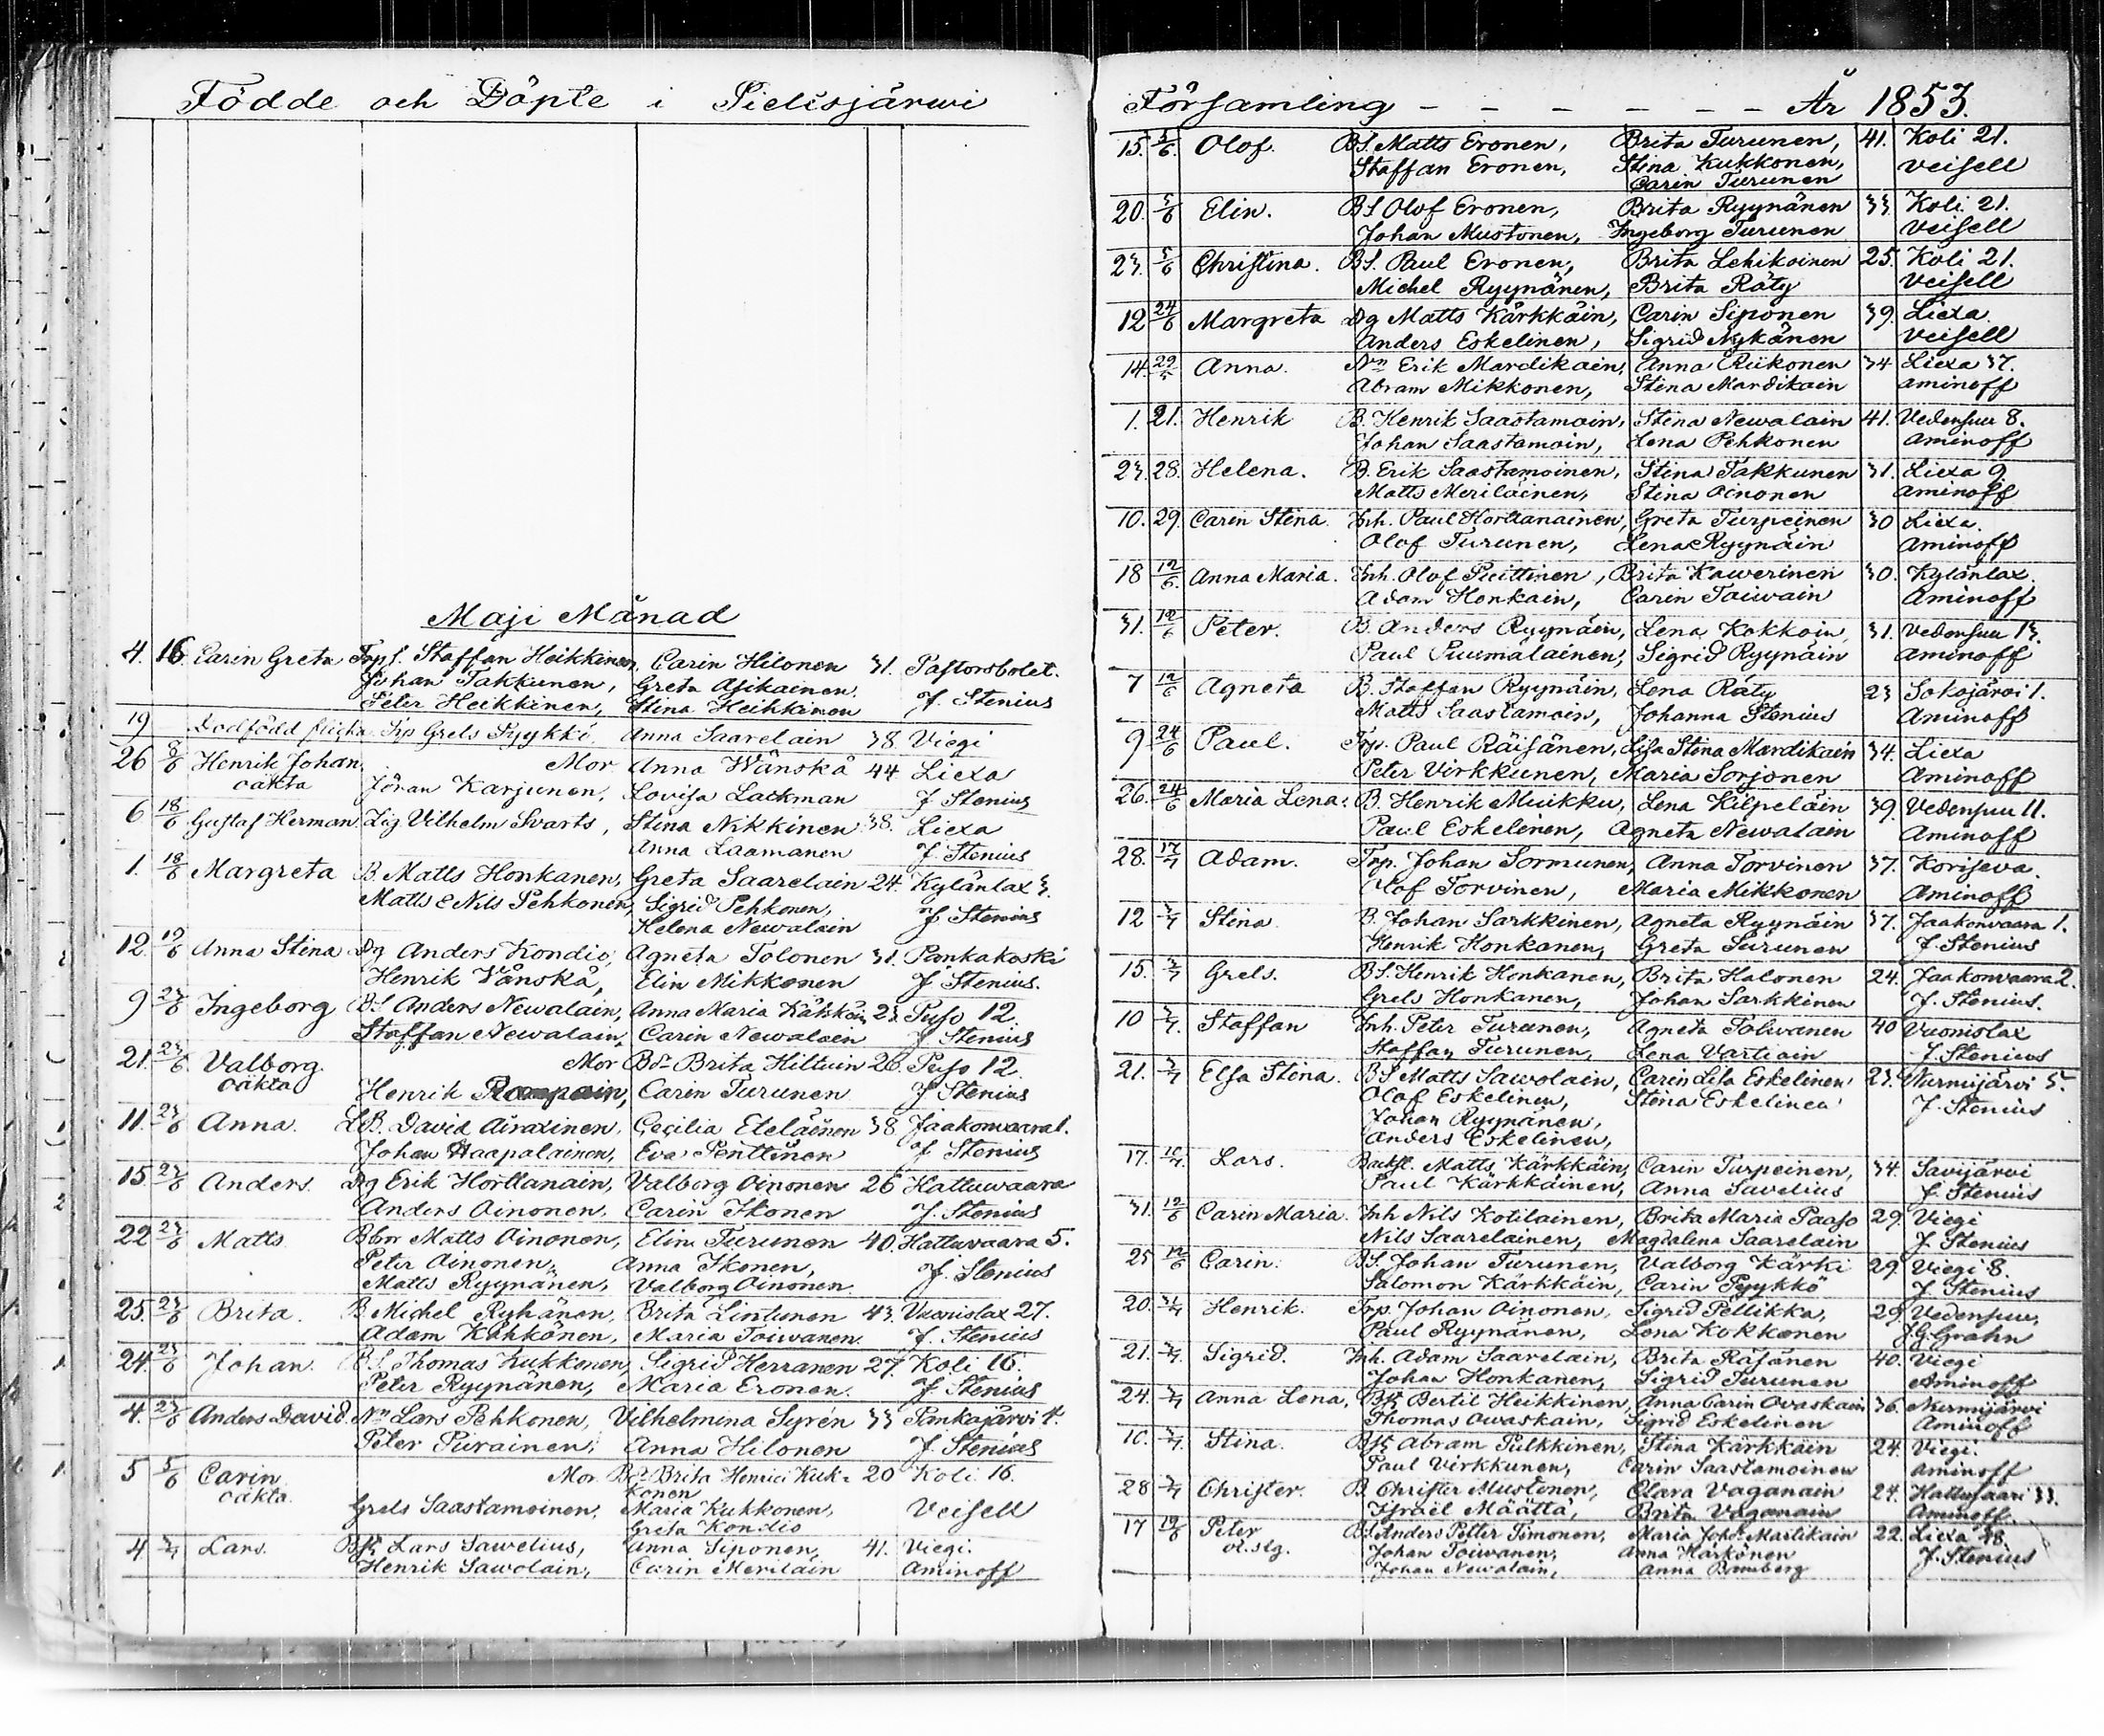 Födde och Döpte i Pielisjärwi
Maji Månad
4. 16 Carin Greta Trpf. Staffan Heikkinen, Carin Hilonen 31. Pastorsbolet.
Johan Takkunen, Greta Asikainen.
Peter Heikkinen, Stina Heikkinen J. Stenius
19 Dödfödd flicka Trp Grels Pyykkö, Anna Saarelain 38. Viegi
26 8/6 Henrik Johan Mor Anna Wänskä 44 Liexa
oäkta Jöran Karjunen, Lovisa Lackman J Stenius
6 18/6 Gustaf Herman Zig Vilhelm Svarts, Stina Nikkinen 38. Liexa
Anna Laamanen J. Stenius
1. 18/6 Margreta B. Matts Honkanen, Greta Saarelain 24. Kylänlax 3.
Matts & Nils Pehkonen, Sigrid Pehkonen, J Stenius
Helena Newalain
12. 19/6 Anna Stina Dg Anders Kondio, Agneta Tolonen 31. Pankakoski
Henrik Vänskä, Elin Mikkonen J Stenius.
9 23/6 Ingeborg BS. Anders Newalain, Anna Maria Kähkön 23 Puso 12.
Staffan Newalain, Carin Newalain J Stenius
21. 23/6 Valborg. Mor Bdr Brita Hiltuin 26. Puso 12.
oäkta Henrik Carin Turunen J Stenius
11. 23/6 Anna. LB. David Airaxinen, Cecilia Eteläinen 38 Jaakonvaara 1.
Johan Haapalainen, Eva Penttinen J Stenius
15. 23/6 Anders. Dg Erik Horttanain, Valborg Oinonen 26 Hattuwaara
Anders Oinonen, Carin Ikonen J. Stenius
22 23/6 Matts. Bbr Matts Oinonen, Elin Turunen 40. Hattuvaara 5.
Peter Oinonen, Anna Ikonen, J. Stenius
Matts Ryynänen, Valborg Oinonen
25. 23/6 Brita. B. Michel Ryhänen, Brita Lintunen 43. Vuonislax 27.
Adam Kähkönen, Maria Toiwanen. J. Stenius
24. 23/6 Johan. BS. Thomas Kukkonen, Sigrid Herranen 27. Koli 16.
Peter Ryynänen, Maria Eronen. J. Stenius
4. 23/6 Anders David. Nn Lars Pehkonen, Vilhelmina Syrén 33 Pankajärvi 4.
Peter Piirainen, Anna Hilonen J. Stenius
5 5/6 Carin Mor. Bd. Brita Henrici Kuk- 20 Koli 16.
oäkta. konen
Grels Saastamoinen, Maria Kukkonen, Veisell
Greta Kondio
4. 3/7 Lars. Bfk Lars Sawelius, Anna Siponen, 41. Viegi.
Henrik Sawolain, Carin Meriläin Aminoff
Församling - - - - - - - År 1853.
15. 5/6. Olof. BS. Matts Eronen, Brita Turunen, 41. Koli 21.
Staffan Eronen, Stina Kukkonen, Veisell
Carin Turunen
20. 5/6 Elin. BS Olof Eronen, Brita Ryynänen 33. Koli 21.
Johan Mustonen, Ingeborg Turunen Veisell
23. 5/6 Christina. BS. Paul Eronen, Brita Lehikoinen 25. Koli 21.
Michel Ryynänen, Brita Räty Veisell
12 24/6 Margreta Dg Matts Kärkkäin, Carin Siponen 39. Liexa.
Anders Eskelinen, Sigrid Nykänen Veisell
14. 29/5 Anna. Nn Erik Mardikain, Anna Riikonen 34 Liexa 37.
Abram Mikkonen, Stina Mardikain Aminoff
1. 21. Henrik B. Henrik Saastamoin, Stina Newalain 41. Vedensuu 8.
Johan Saastamoin, Lena Pehkonen Aminoff
23. 28. Helena. B. Erik Saastamoinen, Stina Takkunen 31. Liexa 9
Matts Meriläinen, Stina Oinonen Aminoff
10. 29. Carin Stina. Inh. Paul Horttanainen, Greta Turpeinen 30 Liexa.
Olof Turunen, Lena Ryynäin Aminoff
18 12/6. Anna Maria. Inh. Olof Puittinen, Brita Kawerinen 30. Kylänlax.
Adam Honkain, Carin Taiwain Aminoff
31. 12/6 Peter. B. Anders Ryynäin, Lena Kokkoin, 31. Vedensuu 13.
Paul Puumalainen, Sigrid Ryynäin Aminoff
7 12/6 Agneta B. Staffan Ryynäin, Lena Räty 23 Sokojärvi 1.
Matts Saastamoin, Johanna Stenius Aminoff
9 24/6 Paul. Trp. Paul Räisänen, Lisa Stina Mardikain 34. Liexa
Peter Virkkunen, Maria Sorjonen Aminoff
26. 24/6 Maria Lena. B. Henrik Muikku, Lena Kilpeläin 39. Vedensuu 11.
Paul Eskelinen, Agneta Newalain Aminoff
28. 17/7 Adam. Trp. Johan Sormunen, Anna Torvinen 37. Koriseva.
Olof Torvinen, Maria Mikkonen Aminoff
12 3/7 Stina. B. Johan Sarkkinen, Agneta Ryynäin 37. Jaakonvaara 1.
Henrik Honkanen, Greta Turunen J. Stenius
15. 3/7 Grels. BS. Henrik Honkanen, Brita Halonen 24. Jaakonvaara 2.
Grels Honkanen, Johan Sarkkinen J. Stenius.
10 3/7. Staffan Inh. Peter Turunen, Agneta Toliwanen 40 Vuonislax
Staffan Turunen, Lena Vartiain J. Stenius
21. 3/7 Elsa Stina. BS Matts Sawolain, Carin Lisa Eskelinen 23. Nurmijärvi 5.
Olof Eskelinen, Stina Eskelinen J. Stenius
Johan Ryynänen,
Anders Eskelinen,
17. 10/7. Lars. Backst. Matts Kärkkäin, Carin Turpeinen, 34. Savijärvi
Paul Kärkkäinen, Anna Savelius J. Stenius
31. 12/6 Carin Maria. Inh Nils Kotilainen, Brita Maria Paaso 29. Viegi
Nils Saarelainen, Magdalena Saarelain J. Stenius
25 12/6 Carin. BS. Johan Turunen, Valborg Kärki 29. Viegi 8.
Salomon Kärkkäin, Carin Pyykkö J. Stenius
20. 31/7 Henrik. Trp. Johan Oinonen, Sigrid Pellikka, 29. Vedensuu,
Paul Ryynänen, Lena Kokkonen J.G. Grahn
21. 3/7. Sigrid. Inh. Adam Saarelain, Brita Räsänen 40. Viegi
Johan Honkanen, Sigrid Turunen Aminoff
24. 3/7 Anna Lena, Bfk Bertil Heikkinen, Anna Carin Ovaskain 36. Nurmijärvi
Thomas Owaskain, Sigrid Eskelinen Aminoff
10. 3/7. Stina. Bfk Abram Pulkkinen, Stina Kärkkäin 24. Viegi.
Paul Virkkunen, Carin Saastamoinen Aminoff
28 3/7 Christer. B. Christer Mustonen, Clara Vaganain 24. Hattusaari 33.
Israël Määttä, Brita Vaganain Aminoff.
17 19/6 Peter BS. Anders Petter Timonen, Maria Johs. Martikain 22. Liexa 48
ol. stg. Johan Toiwanen, Anna Härkönen J. Stenius
Johan Newalain, Anna Bamberg